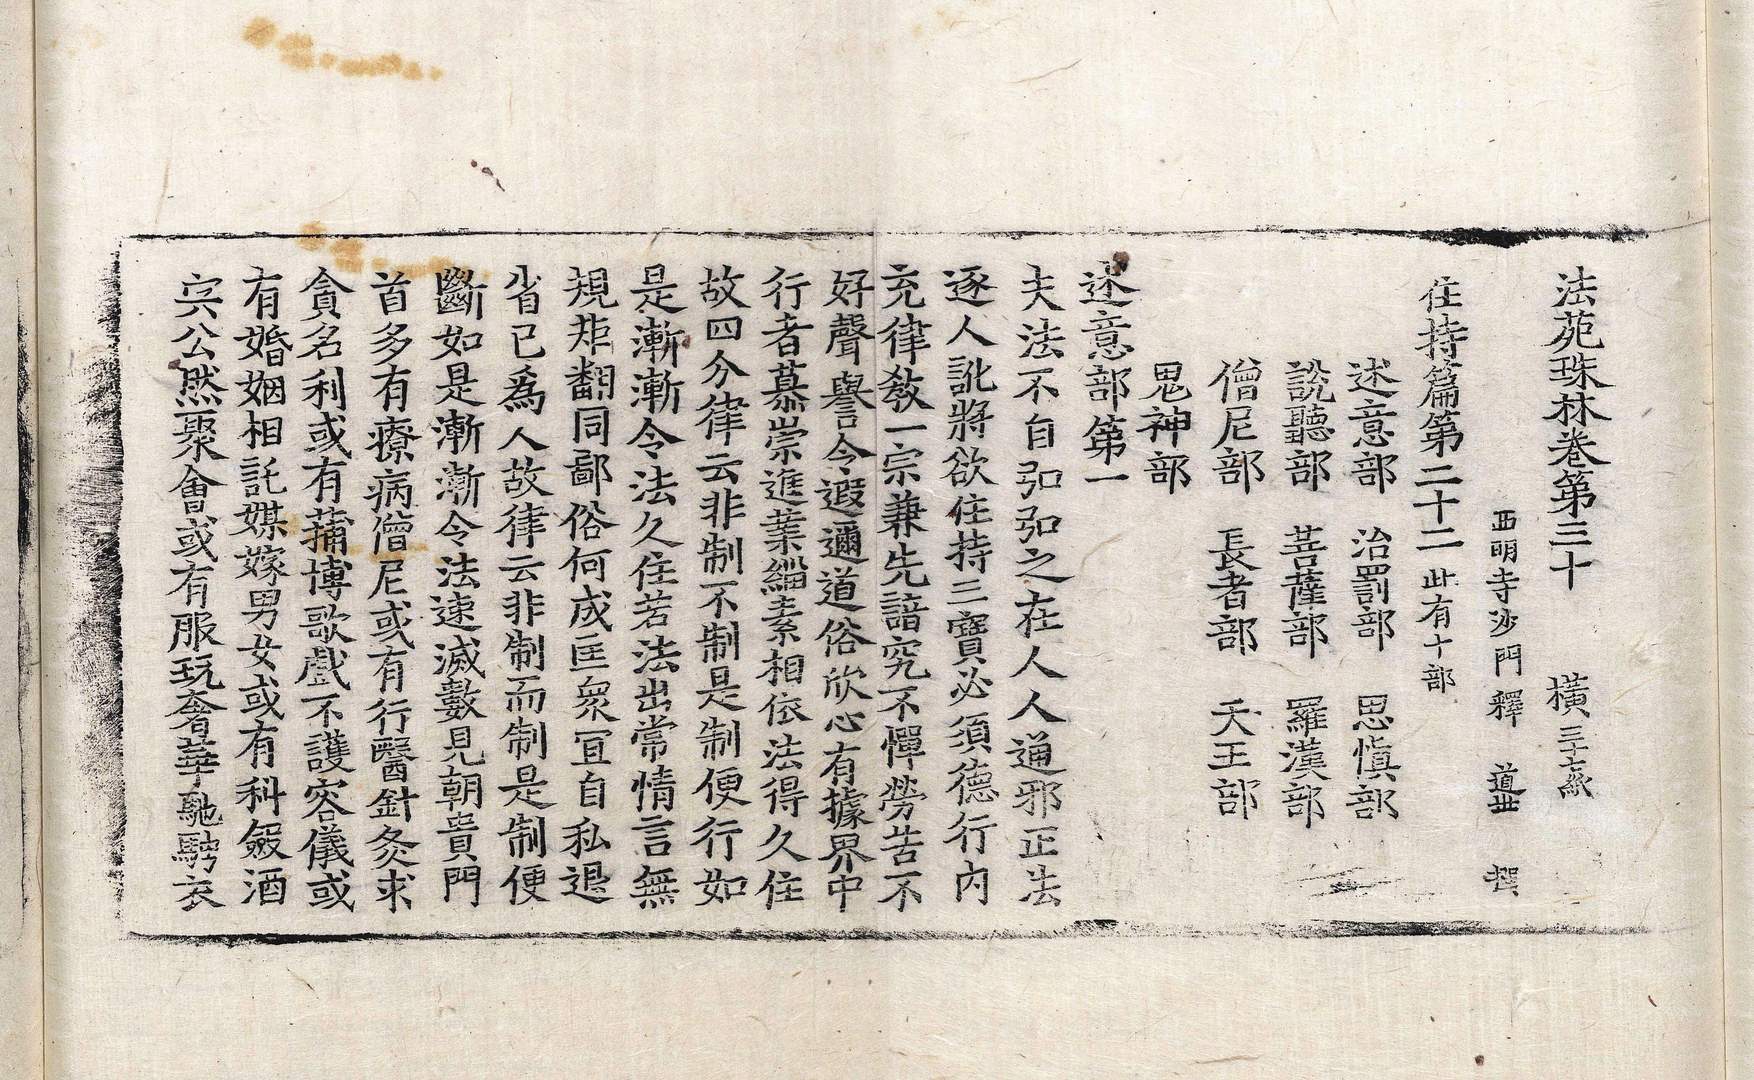 法苑珠林卷第三十 橫 三十七紙
西明寺沙門釋 道世 撰
住持篇第二十二 此有十部
述意部 治罰部 思愼部
說聽部 菩薩部 羅漢部
僧尼部 長者部 天王部
鬼神部
述意部第一
夫法不自弘弘之在人人通邪正法
逐人訛將欲住持三寶必須德行內
充律教一宗兼先諳究不憚勞苦不
好聲譽令遐邇道俗欣心有據界中
行者慕崇進業緇素相依法得久住
故四分律云非制不制是制便行如
是漸漸令法久住若法出常情言無
規矩翻同鄙俗何成匡衆冝自私退
省己為人故律云非制而制是制便
斷如是漸漸令法速滅數見朝貴門
首多有療病僧尼或有行醫針灸求
貪名利或有蒱博歌戲不護容儀或
有婚姻相託媒嫁男女或有科斂酒
宍公然聚會或有服玩奢華馳騁衣